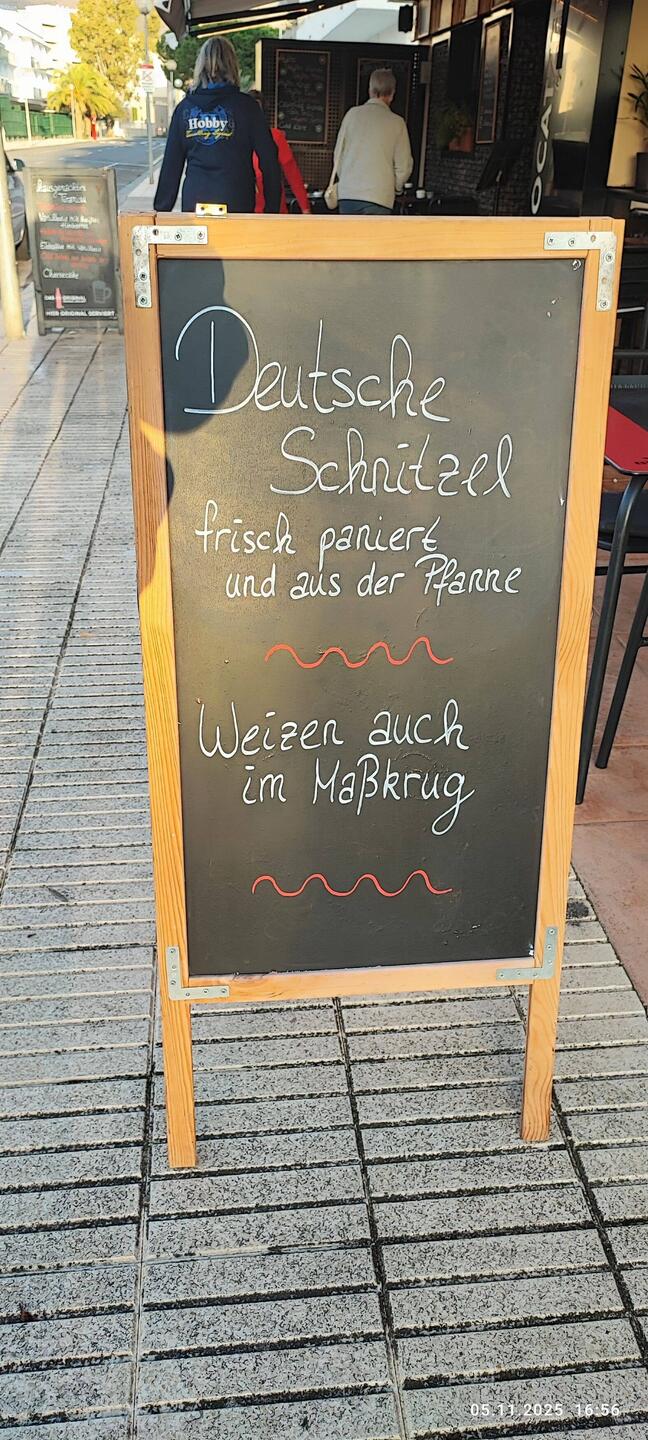 Hobby
Deutsche
Schnitzel
frisch paniert
und aus der Pfanne
Weizen auch
im Maßkrug
Cheesecake
HIER ORIGINAL SERVIERT
05.11.2025 16:56